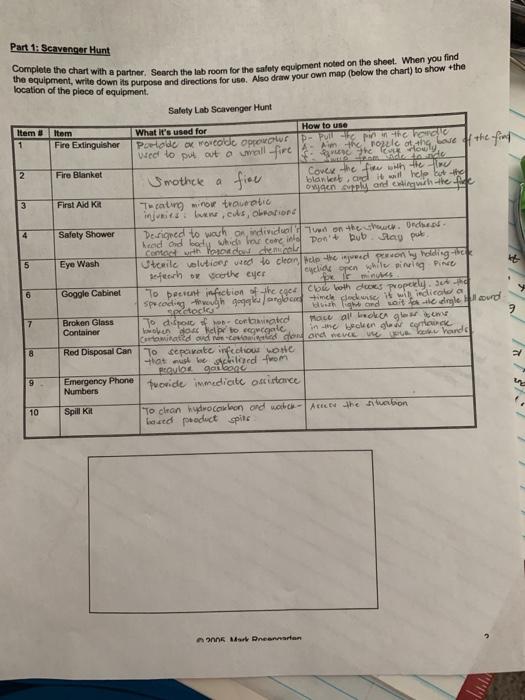 Part 1: Scavenger Hunt
Complete the chart with a partner. Search the lab room for the safety equipment noted on the sheet. When you find
the equipment, write down its purpose and directions for use. Also draw your own map (below the chart) to show +the
location of the piece of equipment.
Safety Lab Scavenger Hunt
Item # Item What it's used for How to use
1 Fire Extinguisher Portable or moveable apparatus
used to put out a small fire
P- Pull the pin in the handle
A- Aim the nozzle at the base of the fire
S- Squeeze the lever slowly
Sweep from side to side
2 Fire Blanket Smother a fire
Cover the fire with the fire
blanket, and it will help cut the
oxygen supply and extinguish the fire
3 First Aid Kit Treating minor traumatic
injuries: burns, cuts, abrasions
4 Safety Shower Designed to wash an individual's
head and body which has come into
contact with hazardous chemicals
Turn on the shower. Undress.
Don't rub. Stay put.
5 Eye Wash Sterile solutions used to clean,
refresh or soothe eyes
Help the injured person by holding their
eyelids open while rinsing. Rinse
for 15 minutes.
6 Goggle Cabinet To prevent infection of the eyes
spreading through goggles/
spectacles
Close both doors properly. Set the
timer clockwise it will indicate a
bluish light and wait for the single bell sound
7 Broken Glass
Container
To dispose of non-contaminated
broken glass. Helps to segregate
contaminated and non-contaminated glass
Place all broken glass items
in the broken glass container
and never use your bare hands
8 Red Disposal Can To separate infectious waste
that must be sterilized from
regular garbage
9 Emergency Phone
Numbers
Provide immediate assistance
10 Spill Kit To clean hydrocarbon and water-
based product spills
Access the situation
© 2005 Mark